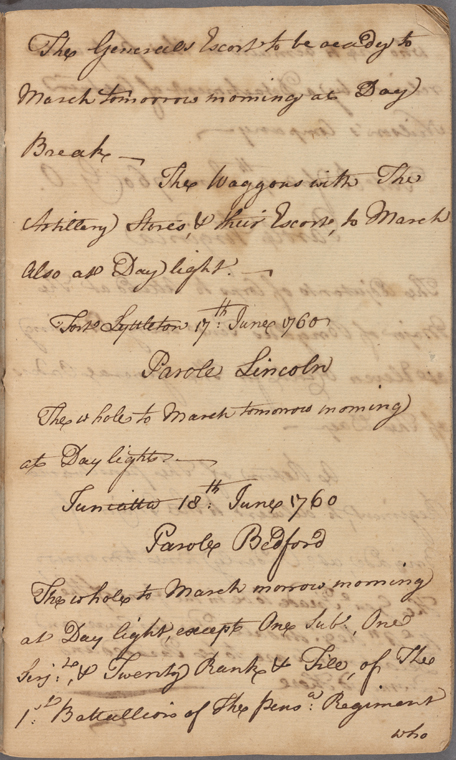 The Generals Escort to be ready to
March tomorrow morning at Day
Break —
The Waggons with The
Artillery Stores, & their Escorts, to March
also at Day light. —
Fort Lyttleton 17th June 1760
Parole Lincoln
The whole to March tomorrow morning
at Day light —
Juniatta 18th June 1760
Parole Bedford
The whole to March morrow morning
at Day light, except One Sub:, One
Serj:t, & Twenty Rank & File, of The
1st Battallion of The Pens:a Regiment
who